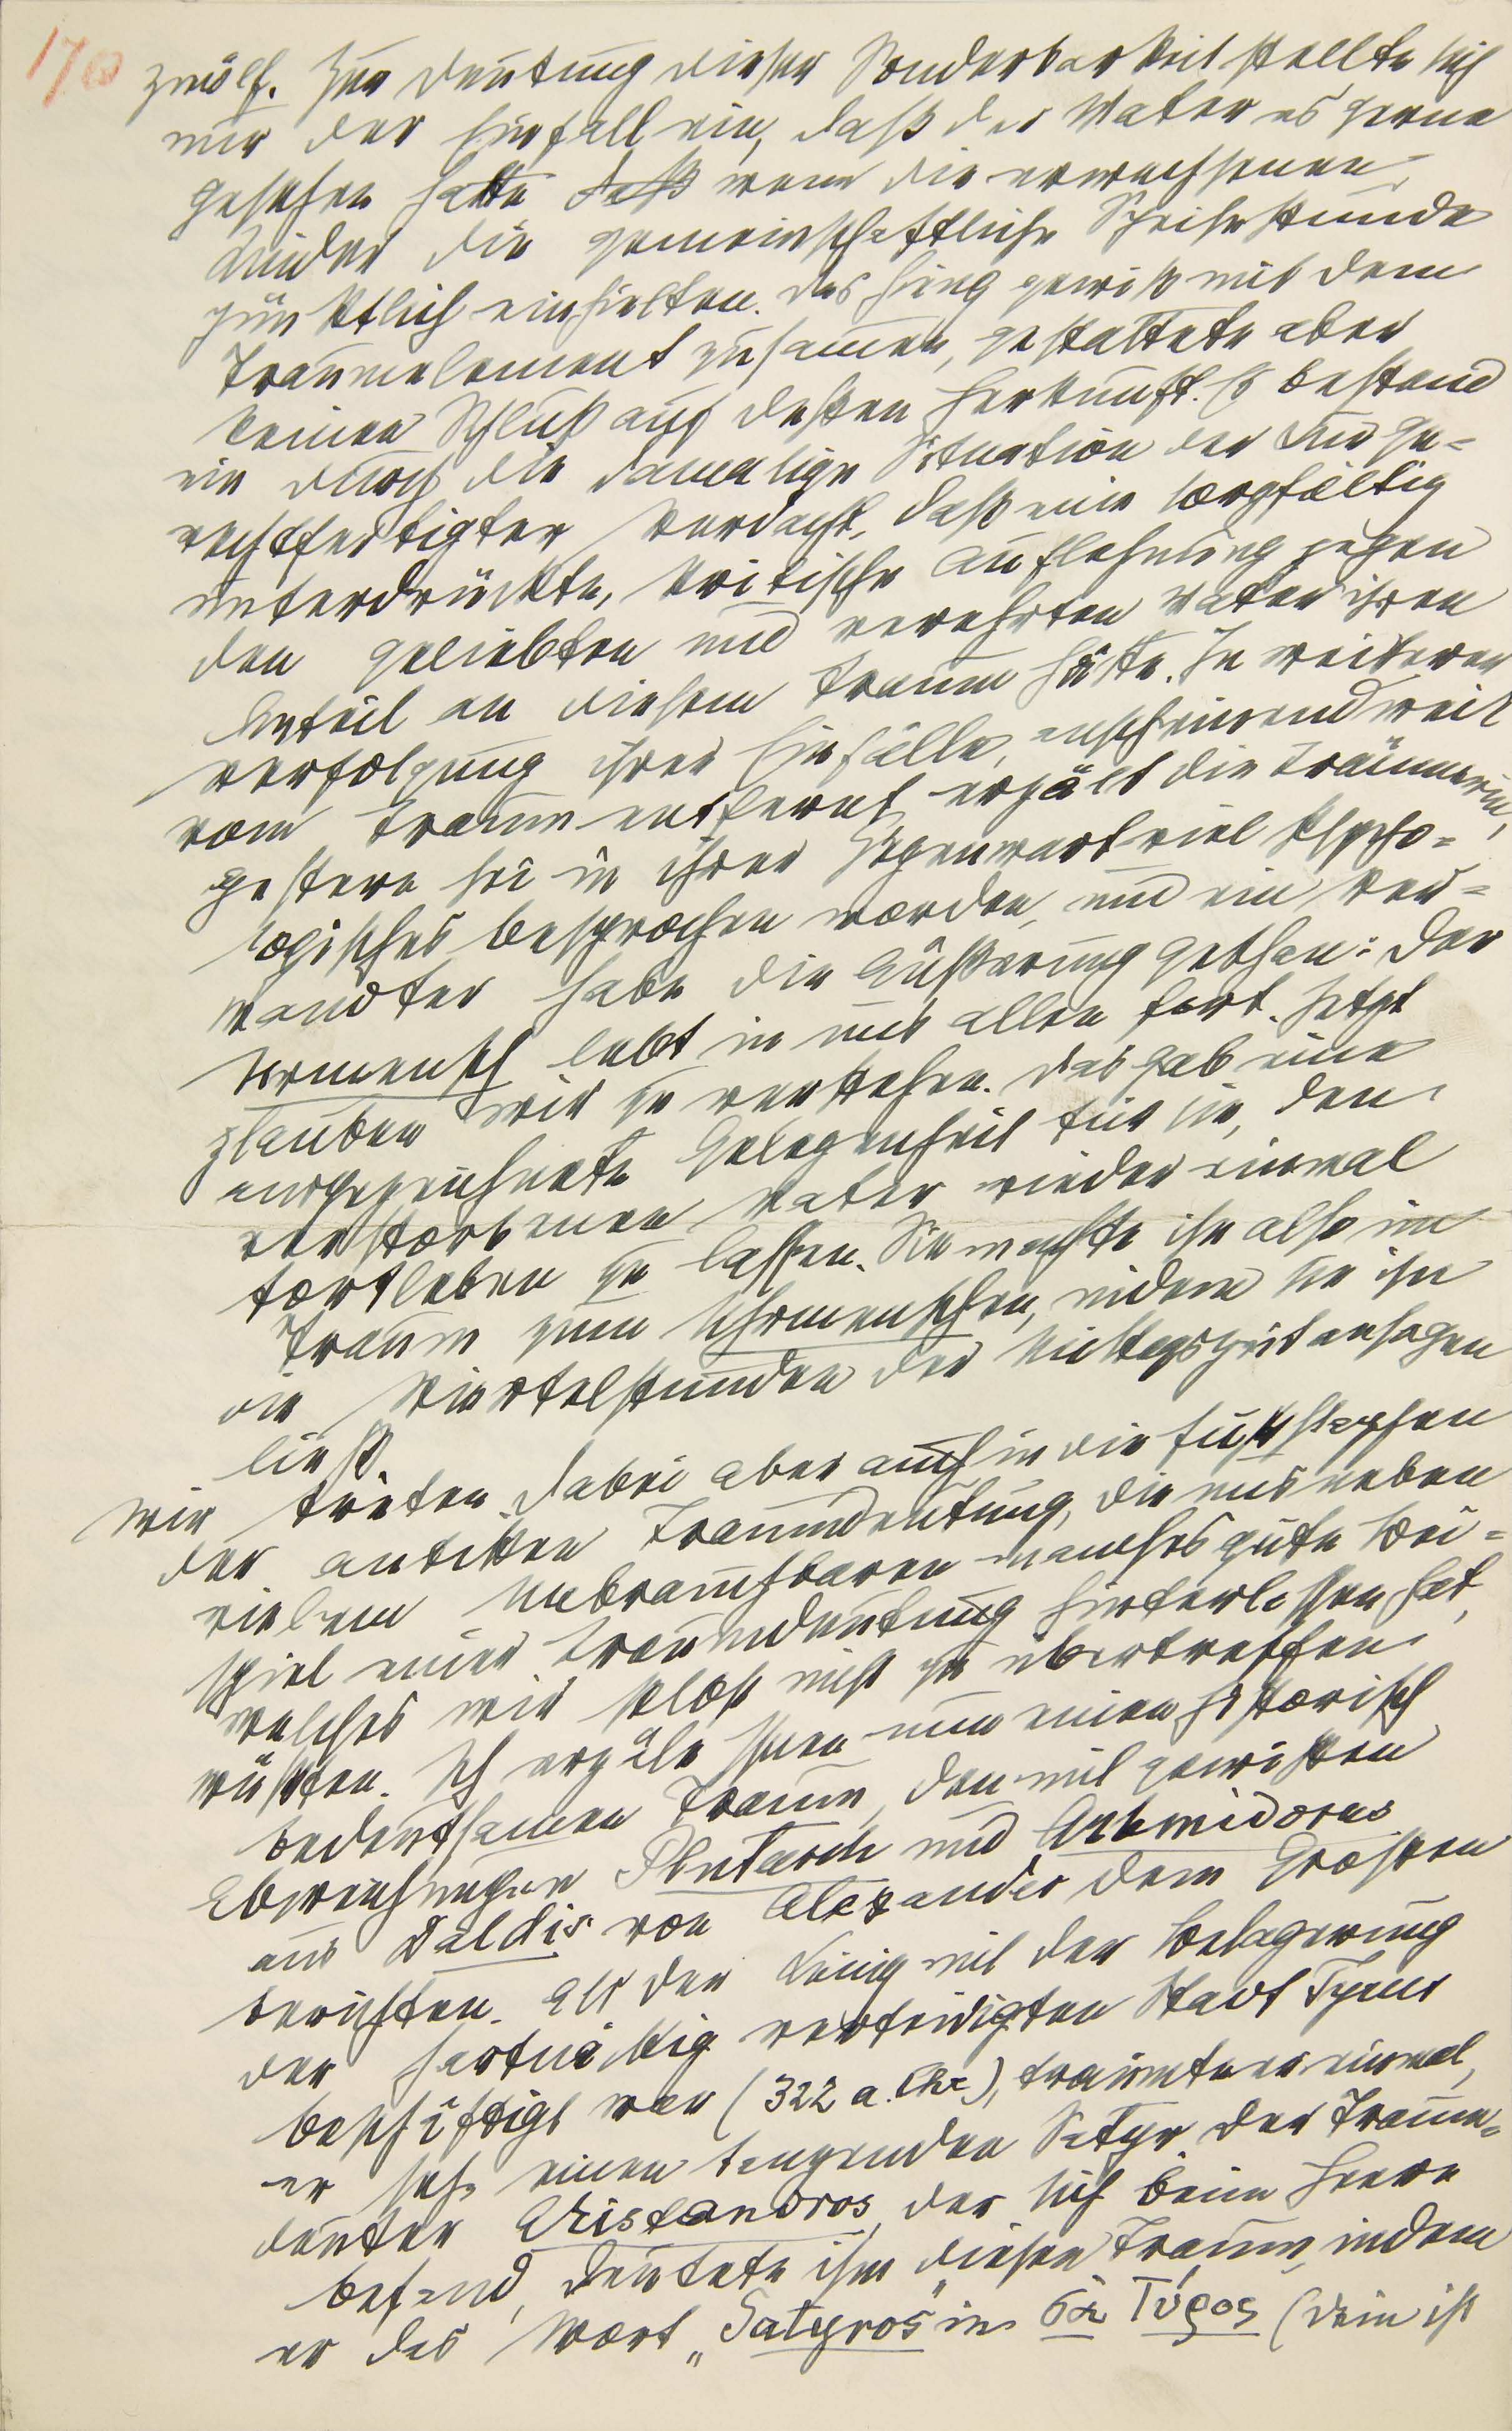 170
zwölf. Zur Deutung dieser Sonderbarkeit stellte sich
nur der Einfall ein, daß der Vater es gerne
gesehen hatte daß wenn die erwachsenen
Kinder die gemeinschaftliche Speisestunde
pünktlich einhielten. Das hing gewiß mit dem
Traumelement zusamen, gestattete aber
keinen Schluß auf deßen Herkunft. Es bestand
ein durch die damalige Situation der Kur ge=
rechtfertigter Verdacht, daß eine sorgfältig
unterdrückte, kritische Auflehnung gegen
den geliebten und verehrten Vater ihren
Anteil an diesem Traum hätte. In weiterer
Verfolgung ihrer Einfälle, anscheinend weit
vom Traum entfernt, erzält die Träumerin,
gestern sei in ihrer Gegenwart viel Psycho=
logisches besprochen worden, und ein Ver=
wandter habe die Äußerung gethan: Der
Urmensch lebt in uns allen fort. Jetzt
glauben wir zu verstehen. Das gab eine
ausgezeichnete Gelegenheit für sie, den
verstorbenen Vater wieder einmal
fortleben zu laßen. Sie machte ihn also im
Traum zum Uhrmenschen, indem sie ihn
die Viertelstunden der Mittagszeit ansagen
ließ.
Wir treten dabei aber auch in die Fußstapfen
der antiken Traumdeutung, die uns neben
vielem Unbrauchbaren manches gute Bei=
spiel einer Traumdeutung hinterlaßen hat,
welches wir selbst nicht zu übertreffen
wüßten. Ich erzäle Ihnen nun einen historisch
bedeutsamen Traum, den mit gewißen
Abweichungen Plutarch und Artemidorus
aus Daldis von Alexander dem Großen
berichten. Als der König mit der Belagerung
der hartnäckig verteidigten Stadt Tyrus
beschäftigt war (322 a. Chr.), träumte er einmal,
er sehe einen tanzenden Satyr. Der Traum=
deuter Aristandros, der sich beim Heere
befand, deutete ihm diesen Traum, indem
er das Wort „Satyros" in σὰ Τύρος (dein ist